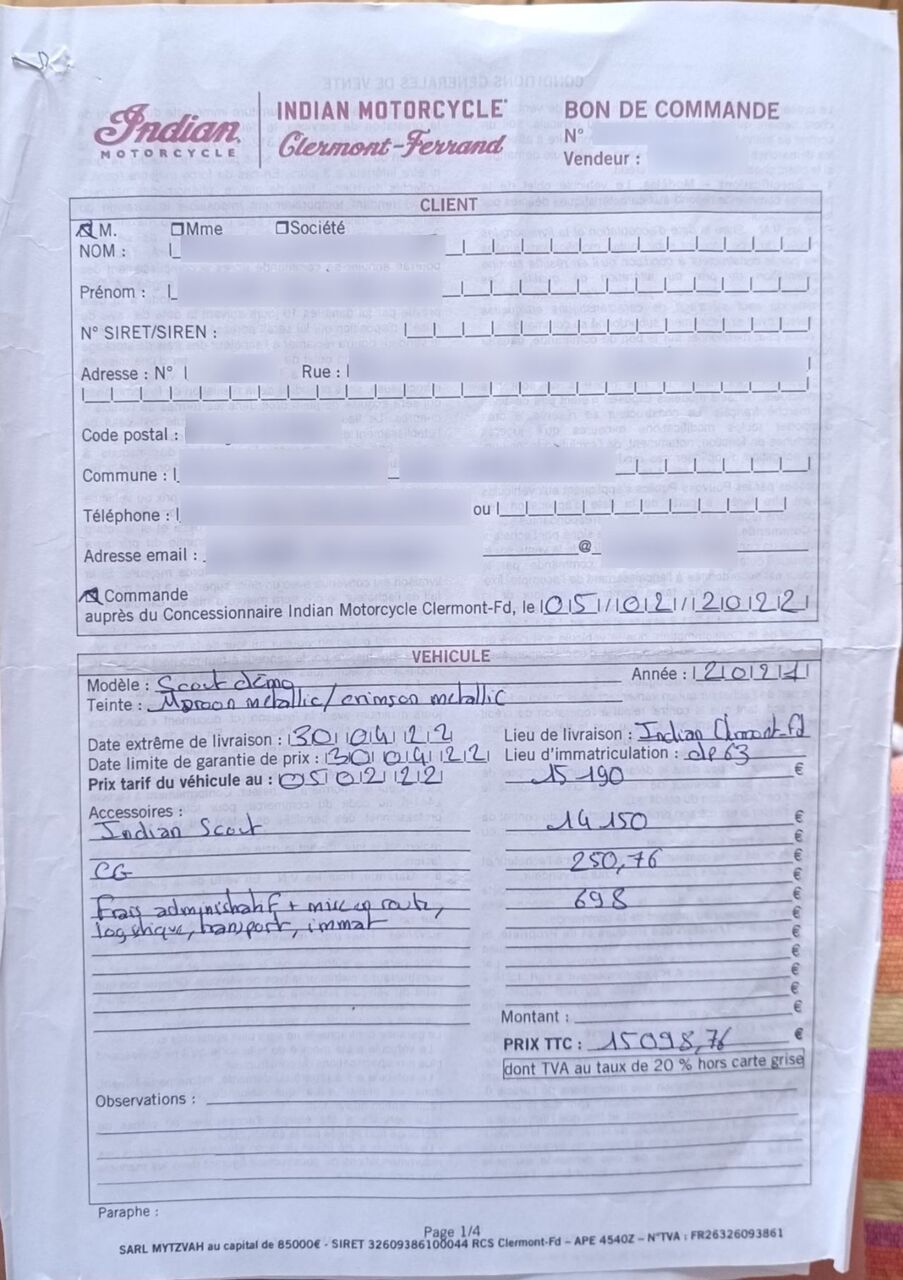 Indian MOTORCYCLE
INDIAN MOTORCYCLE
Clermont-Ferrand
BON DE COMMANDE
N°
Vendeur :
CLIENT
M. Mme Société
NOM :
Prénom :
N° SIRET/SIREN :
Adresse : N° Rue :
Code postal :
Commune :
Téléphone : ou
Adresse email : @
Commande
auprès du Concessionnaire Indian Motorcycle Clermont-Fd, le 05/02/2022
VEHICULE
Modèle : Scout démo Année : 2021
Teinte : Maroon metallic/crimson metallic
Date extrême de livraison : 30 04 22 Lieu de livraison : Indian Clmont-Fd
Date limite de garantie de prix : 30 04 22 Lieu d'immatriculation : dp 63
Prix tarif du véhicule au : 05 02 22 15 190 €
Accessoires :
Indian Scout 14 150 €
€
CG 250,76 €
Frais administratif + mise en route, 698 €
logistique, transport, immat €
€
€
€
€
Montant :
PRIX TTC : 15098,76 €
dont TVA au taux de 20 % hors carte grise
Observations :
Paraphe :
Page 1/4
SARL MYTZVAH au capital de 85000€ - SIRET 32609386100044 RCS Clermont-Fd – APE 4540Z – N°TVA : FR26326093861